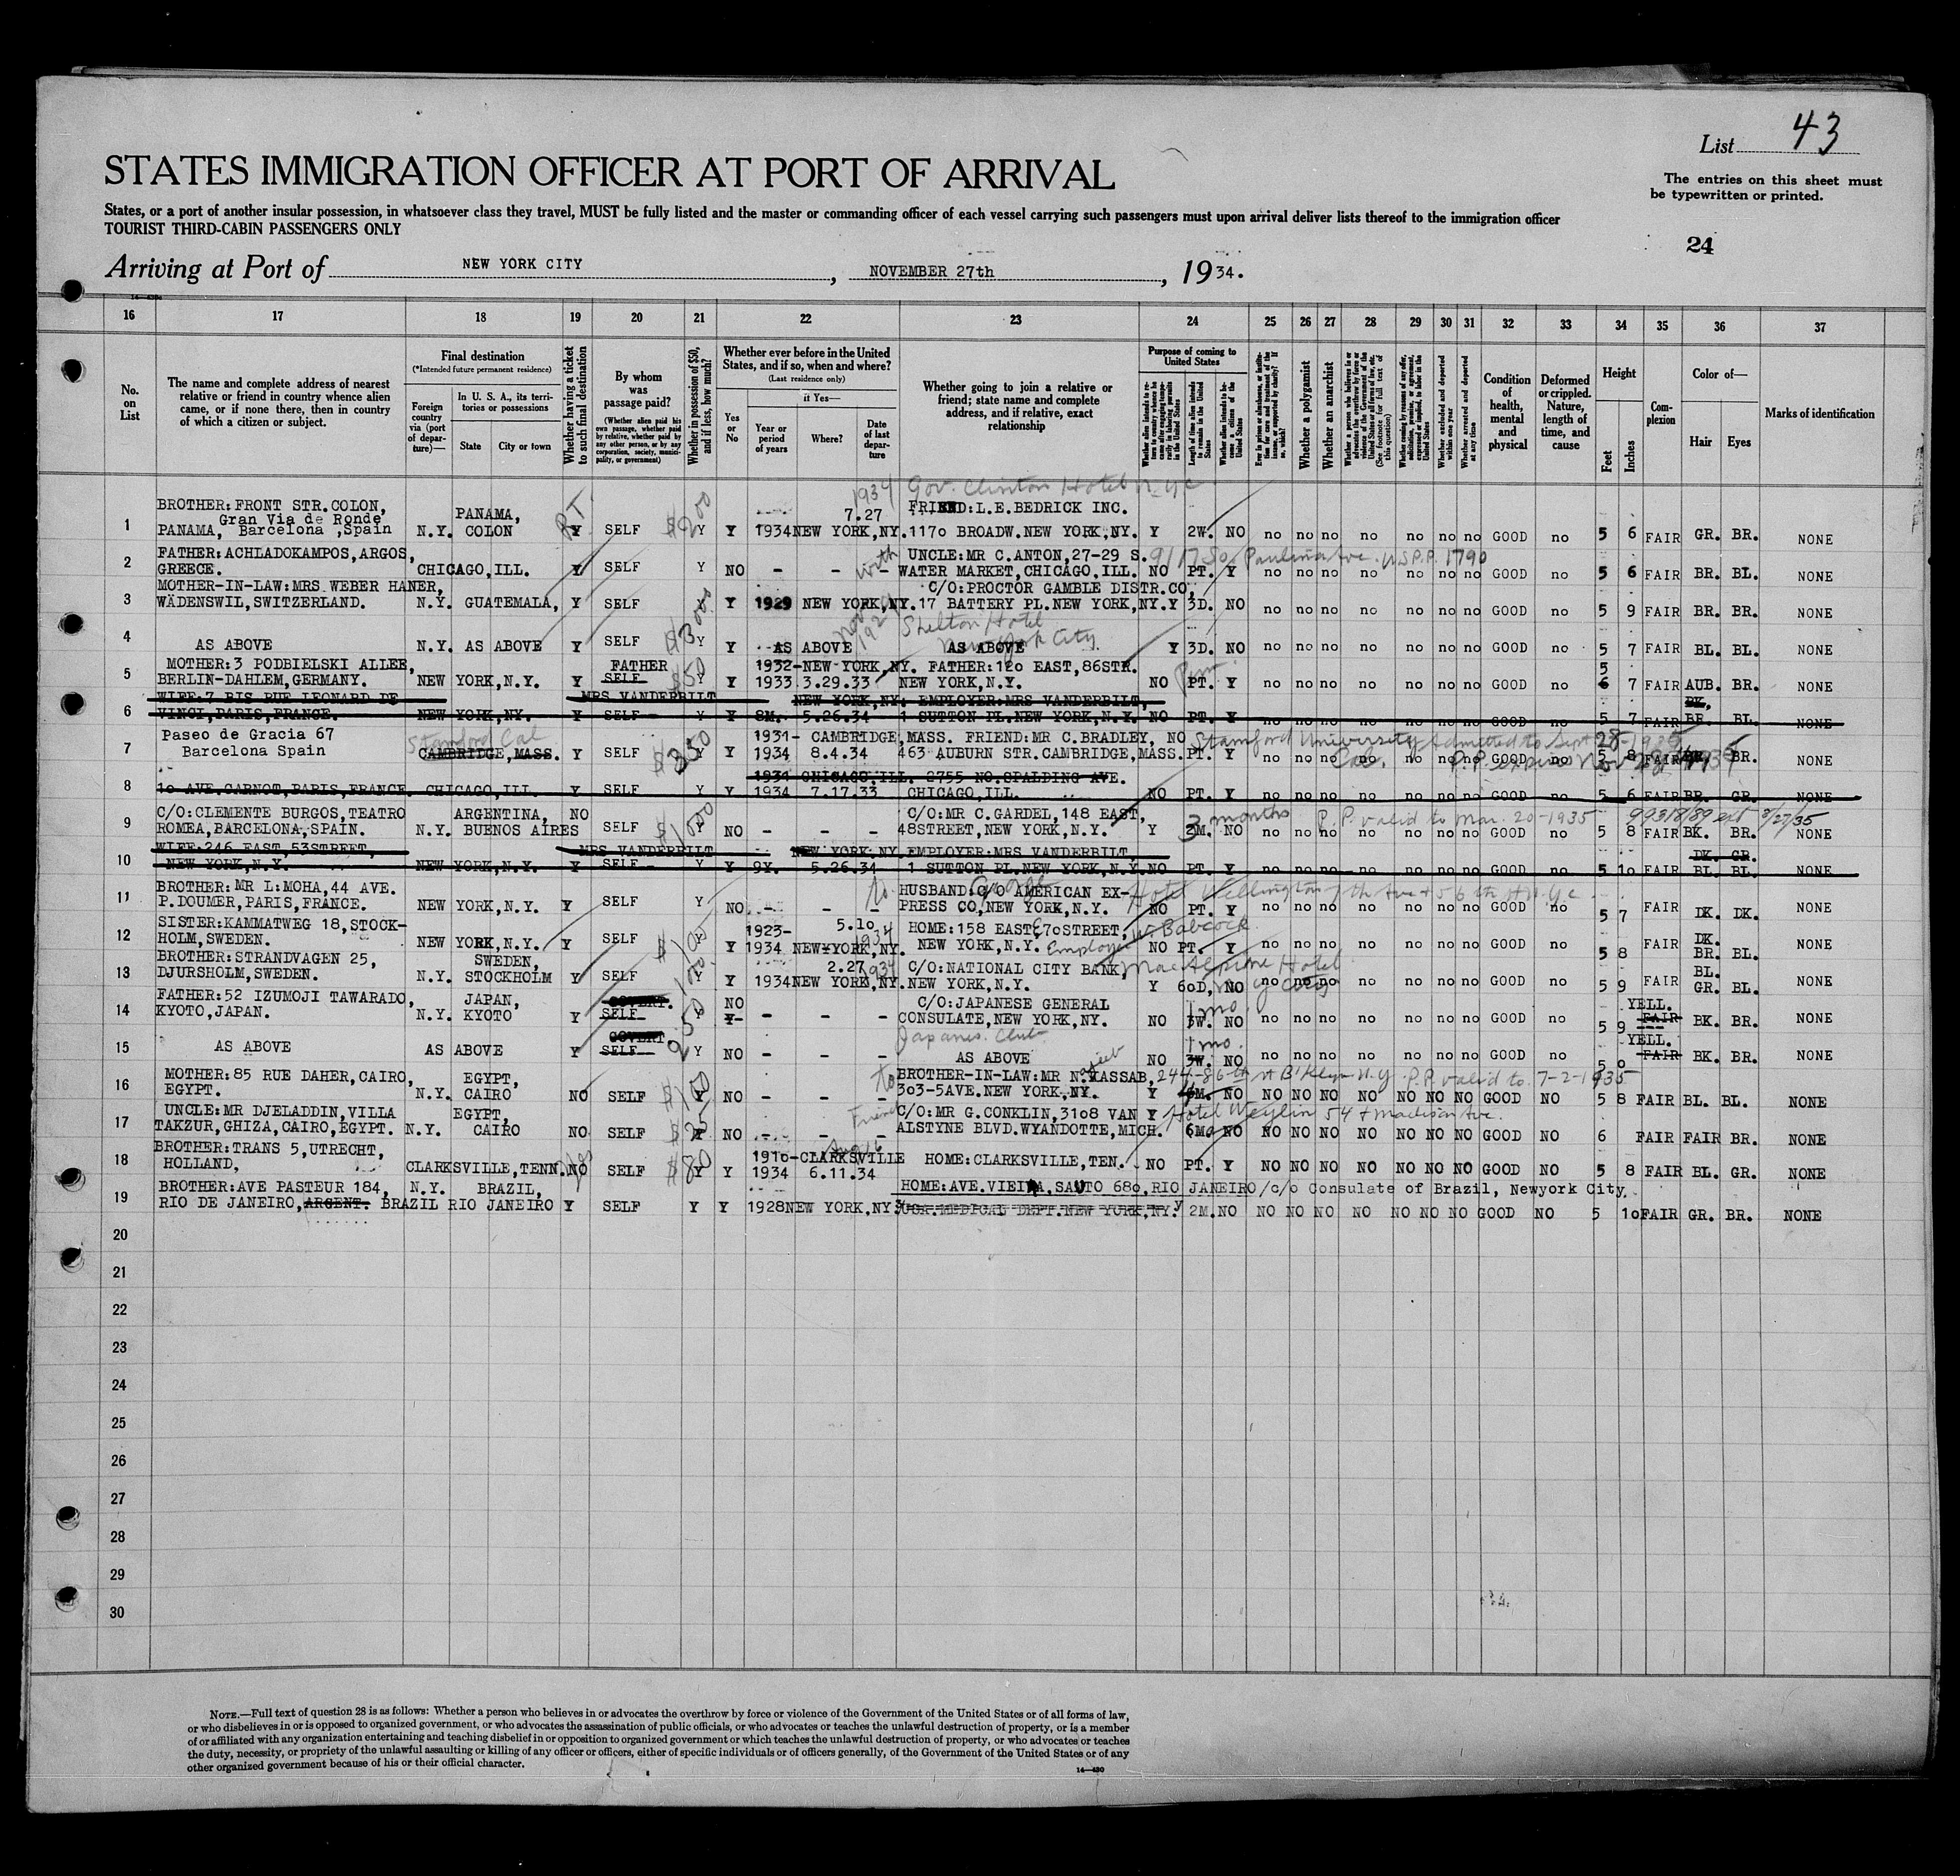 List 43
STATES IMMIGRATION OFFICER AT PORT OF ARRIVAL
The entries on this sheet must
be typewritten or printed.
States, or a port of another insular possession, in whatsoever class they travel, MUST be fully listed and the master or commanding officer of each vessel carrying such passengers must upon arrival deliver lists thereof to the immigration officer
TOURIST THIRD-CABIN PASSENGERS ONLY
24
Arriving at Port of NEW YORK CITY, NOVEMBER 27th, 1934.
16 17 18 19 20 21 22 23 24 25 26 27 28 29 30 31 32 33 34 35 36 37
No. on List
The name and complete address of nearest relative or friend in country whence alien came, or if none there, then in country of which a citizen or subject.
Final destination
(*Intended future permanent residence)
Foreign country via (port of departure)—
In U. S. A., its territories or possessions
State City or town
Whether having a ticket to such final destination
By whom was passage paid?
(Whether alien paid his own passage, whether paid by relative, whether paid by any other person, or by any corporation, society, municipality, or government)
Whether in possession of $50, and if less, how much?
Whether ever before in the United States, and if so, when and where?
(Last residence only)
Yes or No
if Yes—
Year or period of years
Where?
Date of last departure
Whether going to join a relative or friend; state name and complete address, and if relative, exact relationship
Purpose of coming to United States
Length of time alien intends to remain in the United States
Whether alien intends to become a citizen of the United States
Whether a polygamist
Whether an anarchist
(See footnote for full text of this question)
Whether excluded and deported within one year
Whether arrested and deported at any time
Condition of health, mental and physical
Deformed or crippled. Nature, length of time, and cause
Height
Feet Inches
Complexion
Color of—
Hair Eyes
Marks of identification
1934 Gov. Clinton Hotel N.Y.C
BROTHER: FRONT STR.COLON, PANAMA, 7.27 FRIEND:L.E.BEDRICK INC.
Gran Via de Ronde
1 PANAMA, Barcelona ,Spain N.Y. COLON Y SELF $200 Y Y 1934 NEW YORK,NY. 1170 BROADW.NEW YORK,NY. Y 2W. NO no no no no no no no GOOD no 5 6 FAIR GR. BR. NONE
FATHER:ACHLADOKAMPOS,ARGOS, UNCLE:MR C.ANTON,27-29 S. 917 So Paulina Ave.
2 GREECE. CHICAGO,ILL. Y SELF Y NO - - - WATER MARKET,CHICAGO,ILL. NO PT. Y no no no no no no no GOOD no 5 6 FAIR BR. BL. NONE
MOTHER-IN-LAW:MRS WEBER HANER, C/O:PROCTOR GAMBLE DISTR.CO,
3 WÄDENSWIL,SWITZERLAND. N.Y. GUATEMALA, Y SELF Y Y 1929 NEW YORK,NY. 17 BATTERY PL.NEW YORK,NY. Y 3D. NO no no no no no no no GOOD no 5 9 FAIR BR. BR. NONE
Shelton Hotel
New York City
4 AS ABOVE N.Y. AS ABOVE Y SELF Y Y AS ABOVE AS ABOVE Y 3D. NO no no no no no no no GOOD no 5 7 FAIR BL. BL. NONE
MOTHER:3 PODBIELSKI ALLEE, FATHER 1932-NEW YORK,NY. FATHER:120 EAST,86STR. 5
5 BERLIN-DAHLEM,GERMANY. NEW YORK,N.Y. Y SELF $50 Y Y 1933 3.29.33 NEW YORK,N.Y. NO PT. Y no no no no no no no GOOD no 6 7 FAIR AUB. BR. NONE
WIFE:7 BIS RUE LEONARD DE MRS VANDERBILT NEW YORK,NY. EMPLOYER:MRS VANDERBILT, BK,
6 VINCI,PARIS,FRANCE. NEW YORK,NY. Y SELF Y Y 8M. 5.26.34 1 SUTTON PL.NEW YORK,N.Y. NO PT. Y no no no no no no no GOOD no 5 7 FAIR BR. BL. NONE
Paseo de Gracia 67 Stamford Cal 1931- CAMBRIDGE,MASS. FRIEND:MR C.BRADLEY, NO Stamford University Admitted to Sept 28-1935
7 Barcelona Spain CAMBRIDGE,MASS. Y SELF $350 Y Y 1934 8.4.34 463 AUBURN STR.CAMBRIDGE,MASS. PT. Y no no no no no no no GOOD no 5 8 FAIR BR. BR. NONE
1931 CHICAGO,ILL. 2755 NO.SPALDING AVE.
8 10 AVE.CARNOT,PARIS,FRANCE. CHICAGO,ILL. Y SELF Y Y 1934 7.17.33 CHICAGO,ILL. NO PT. Y no no no no no no no GOOD no 5 6 FAIR BR. GR. NONE
C/O:CLEMENTE BURGOS,TEATRO ARGENTINA, NO C/O:MR C.GARDEL,148 EAST, 3 months P.P. valid to Mar. 20-1935 99318/89 ext 8/27/35
9 ROMEA,BARCELONA,SPAIN. N.Y. BUENOS AIRES SELF $1000 Y NO - - - 48STREET,NEW YORK,N.Y. Y 2M. NO no no no no no no no GOOD no 5 8 FAIR BK. BR. NONE
WIFE:246 EAST,53STREET, MRS VANDERBILT NEW YORK,NY. EMPLOYER:MRS VANDERBILT, DK. GR.
10 NEW YORK,N.Y. NEW YORK,N.Y. Y SELF Y Y 9Y. 5.26.34 1 SUTTON PL.NEW YORK,N.Y. NO PT. Y no no no no no no no GOOD no 5 10 FAIR BL. BL. NONE
BROTHER:MR L:MOHA,44 AVE. to HUSBAND:C/O AMERICAN EX- George Hotel Wellington 7th Ave + 56th St N.Y.C
11 P.DOUMER,PARIS,FRANCE. NEW YORK,N.Y. Y SELF Y NO - - - PRESS CO,NEW YORK,N.Y. NO PT. Y no no no no no no no GOOD no 5 7 FAIR DK. DK. NONE
SISTER:KAMMATWEG 18,STOCK- 1923- 5.10 1934 HOME:158 EAST 70STREET, Babcock DK.
12 HOLM,SWEDEN. NEW YORK,N.Y. Y SELF $100 Y Y 1934 NEW YORK,NY. NEW YORK,N.Y. Employer NO PT. Y no no no no no no no GOOD no 5 8 FAIR BR. BL. NONE
BROTHER:STRANDVAGEN 25, SWEDEN, 2.27 1934 C/O:NATIONAL CITY BANK, MacAlpine Hotel BL.
13 DJURSHOLM,SWEDEN. N.Y. STOCKHOLM Y SELF Y Y 1934 NEW YORK,NY. NEW YORK,N.Y. Y 60D, NO no no no no no no no GOOD no 5 9 FAIR GR. BL. NONE
FATHER:52 IZUMOJI TAWARADO, JAPAN, GOVERT. NO C/O:JAPANESE GENERAL 1 mo. YELL.
14 KYOTO,JAPAN. N.Y. KYOTO Y SELF Y - - - CONSULATE,NEW YORK,NY. NO 3W. NO no no no no no no no GOOD no 5 9 FAIR BK. BR. NONE
GOVERT Japanes. Club 1 mo. YELL.
15 AS ABOVE AS ABOVE Y SELF Y NO - - - AS ABOVE NO 3W. NO no no no no no no no GOOD no 5 0 FAIR BK. BR. NONE
MOTHER:85 RUE DAHER,CAIRO, EGYPT, to BROTHER-IN-LAW:MR N.KASSAB, 244-86th St B'klyn N.Y. P.P. valid to 7-2-1935
16 EGYPT. N.Y. CAIRO NO SELF $100 Y NO - - - 303-5AVE.NEW YORK,NY. Y M. NO NO NO NO NO NO NO NO GOOD NO 5 8 FAIR BL. BL. NONE
UNCLE:MR DJELADDIN,VILLA EGYPT, Friend C/O:MR G.CONKLIN,3108 VAN Y Hotel Weylin 54 + Madison Ave.
17 TAKZUR,GHIZA,CAIRO,EGYPT. N.Y. CAIRO NO SELF Y NO - - - ALSTYNE BLVD.WYANDOTTE,MICH. 6M NO NO NO NO NO NO NO NO GOOD NO 6 FAIR FAIR BR. NONE
BROTHER:TRANS 5,UTRECHT, 1910-CLARKSVILLE
18 HOLLAND, CLARKSVILLE,TENN. NO yes SELF $80 Y Y 1934 6.11.34 HOME:CLARKSVILLE,TEN. NO PT. Y NO NO NO NO NO NO NO GOOD NO 5 8 FAIR BL. GR. NONE
BROTHER:AVE PASTEUR 184, N.Y. BRAZIL, HOME:AVE.VIEIRA,SAUTO 680,RIO JANEIRO/c/o Consulate of Brazil, Newyork City
19 RIO DE JANEIRO,ARGENT. BRAZIL RIO JANEIRO Y SELF Y Y 1928 NEW YORK,NY. MEDICAL DEPT.NEW YORK,NY. Y 2M. NO NO NO NO NO NO NO NO GOOD NO 5 10 FAIR GR. BR. NONE
20
21
22
23
24
25
26
27
28
29
30
NOTE.—Full text of question 28 is as follows: Whether a person who believes in or advocates the overthrow by force or violence of the Government of the United States or of all forms of law,
or who disbelieves in or is opposed to organized government, or who advocates the assassination of public officials, or who advocates or teaches the unlawful destruction of property, or is a member
of or affiliated with any organization entertaining and teaching disbelief in or opposition to organized government or which teaches the unlawful destruction of property, or who advocates or teaches
the duty, necessity, or propriety of the unlawful assaulting or killing of any officer or officers, either of specific individuals or of officers generally, of the Government of the United States or of any
other organized government because of his or their official character.
14—430